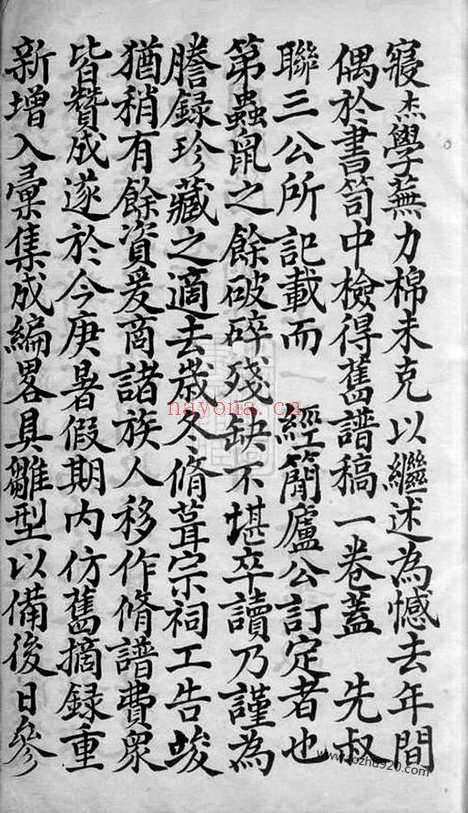 寢杰學蕪力棉未克以繼述為憾去年間
偶於書笥中檢得舊譜稿一卷蓋 先叔
聯三公所記載而 經簡廬公訂定者也
第蟲鼠之餘破碎殘缺不堪卒讀乃謹為
謄錄珍藏之適去歲冬脩葺宗祠工告竣
猶稍有餘資爰商諸族人移作脩譜費衆
皆贊成遂於今庚暑假期內仿舊摘録重
新增入彙集成編畧具雛型以備後日參
nayona.cn
www.rozhu920.com